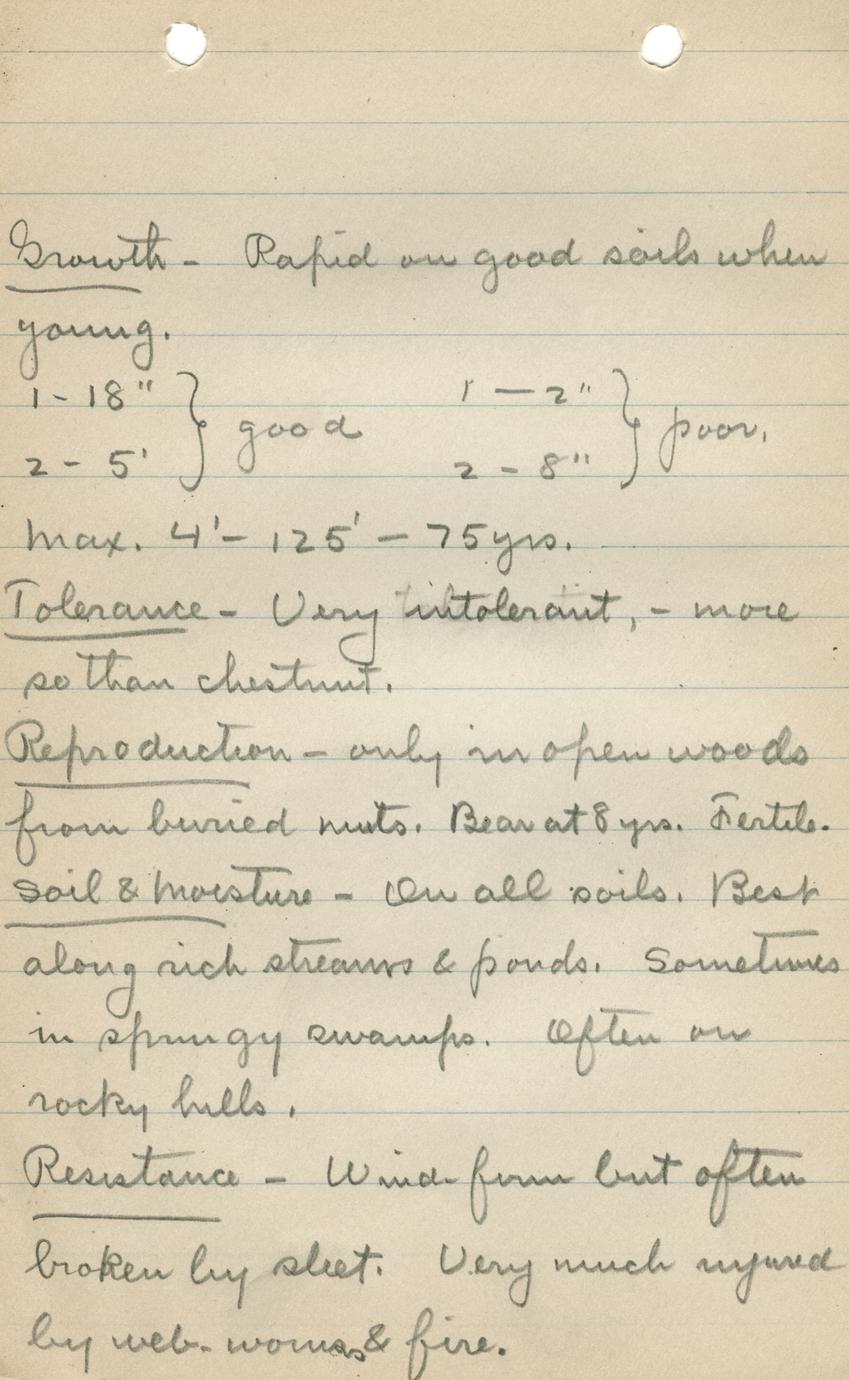 Growth - Rapid on good soils when
young.
1 - 18" } good 1 — 2" } poor.
2 - 5' 2 - 8"
Max. 4' - 125' - 75 yrs.
Tolerance - Very intolerant, - more
so than chestnut.
Reproduction - only in open woods
from buried nuts. Bear at 8 yrs. Fertile.
Soil & Moisture - On all soils. Best
along rich streams & ponds. Sometimes
in springy swamps. Often on
rocky hills.
Resistance - Wind-firm but often
broken by sleet. Very much injured
by web-worms & fire.